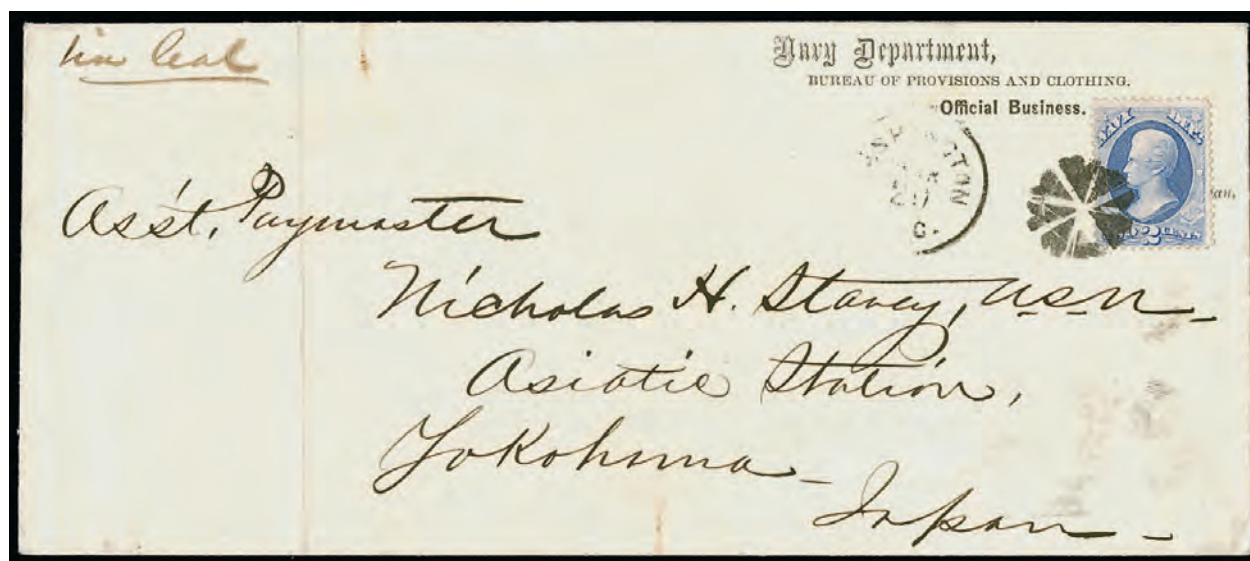 via Cal
Navy Department,
BUREAU OF PROVISIONS AND CLOTHING.
Official Business.
NAVY DEPT.
3 CENTS
Ass't, Paymaster
Nicholas H. Stavey, U.S.N.
Asiatic Station,
Yokohama
Japan